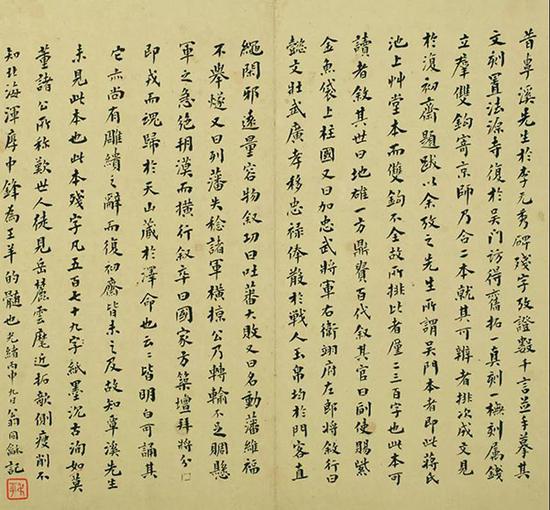 昔覃溪先生於李元秀碑殘字攷證數千言並手摹其
文刻置法源寺復於吳門訪得舊拓一真刻一橅刻屬錢
立羣雙鉤寄京師乃合二本就其可辨者排次成文見
於復初齋題跋以余攷之先生所謂吳門本者即此蔣氏
池上艸堂本而雙鉤不全故所排比者廑二三百字也此本可
讀者敘其世曰地雄一方鼎貲百代敘其官曰副使賜紫
金魚袋上柱國又曰加忠武將軍右衛翊府左郎將敘行曰
懿文壯武廣孝移忠祿俸散於戰人玉帛均於門客直
繩閑邪遠量容物敘功曰吐蕃大敗又曰名動藩維福
不舉燧又曰列藩失稔諸軍橫掠公乃轉輸不乏賙懸
軍之急絕朔漠而橫行敘卒曰國家方築壇拜將分□
即戎而魂歸於天山藏於澤命也云云皆明白可誦其
它亦尚有雕繢之辭而復初齋皆未之及故知覃溪先生
未見此本也此本殘字凡五百七十九字紙墨沉古洵如莫
董諸公所稱歎世人徒見岳麓雲麾近拓欹側瘦削不
知北海渾厚中鋒為王羊的髓也光緒丙申九月翁同龢記